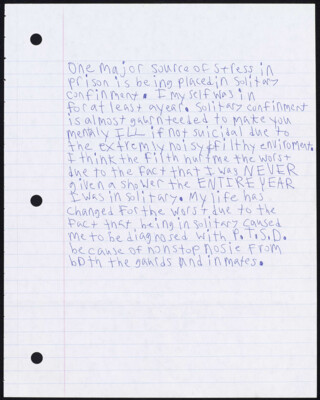 One major source of stress in
prison is being placed in solitary
confinment. I myself was in
for at least a year. Solitary confinment
is almost gaurnteeded to make you
mentaly ILL if not suicidal due to
the extremly noisy & filthy enviroment.
I think the filth hurt me the worst
due to the fact that I was NEVER
given a shower the ENTIRE YEAR
I was in solitary. My life has
changed for the worst due to the
fact that being in solitary caused
me to be diagnosed with P.T.S.D.
because of nonstop nosie from
both the gaurds and inmates.